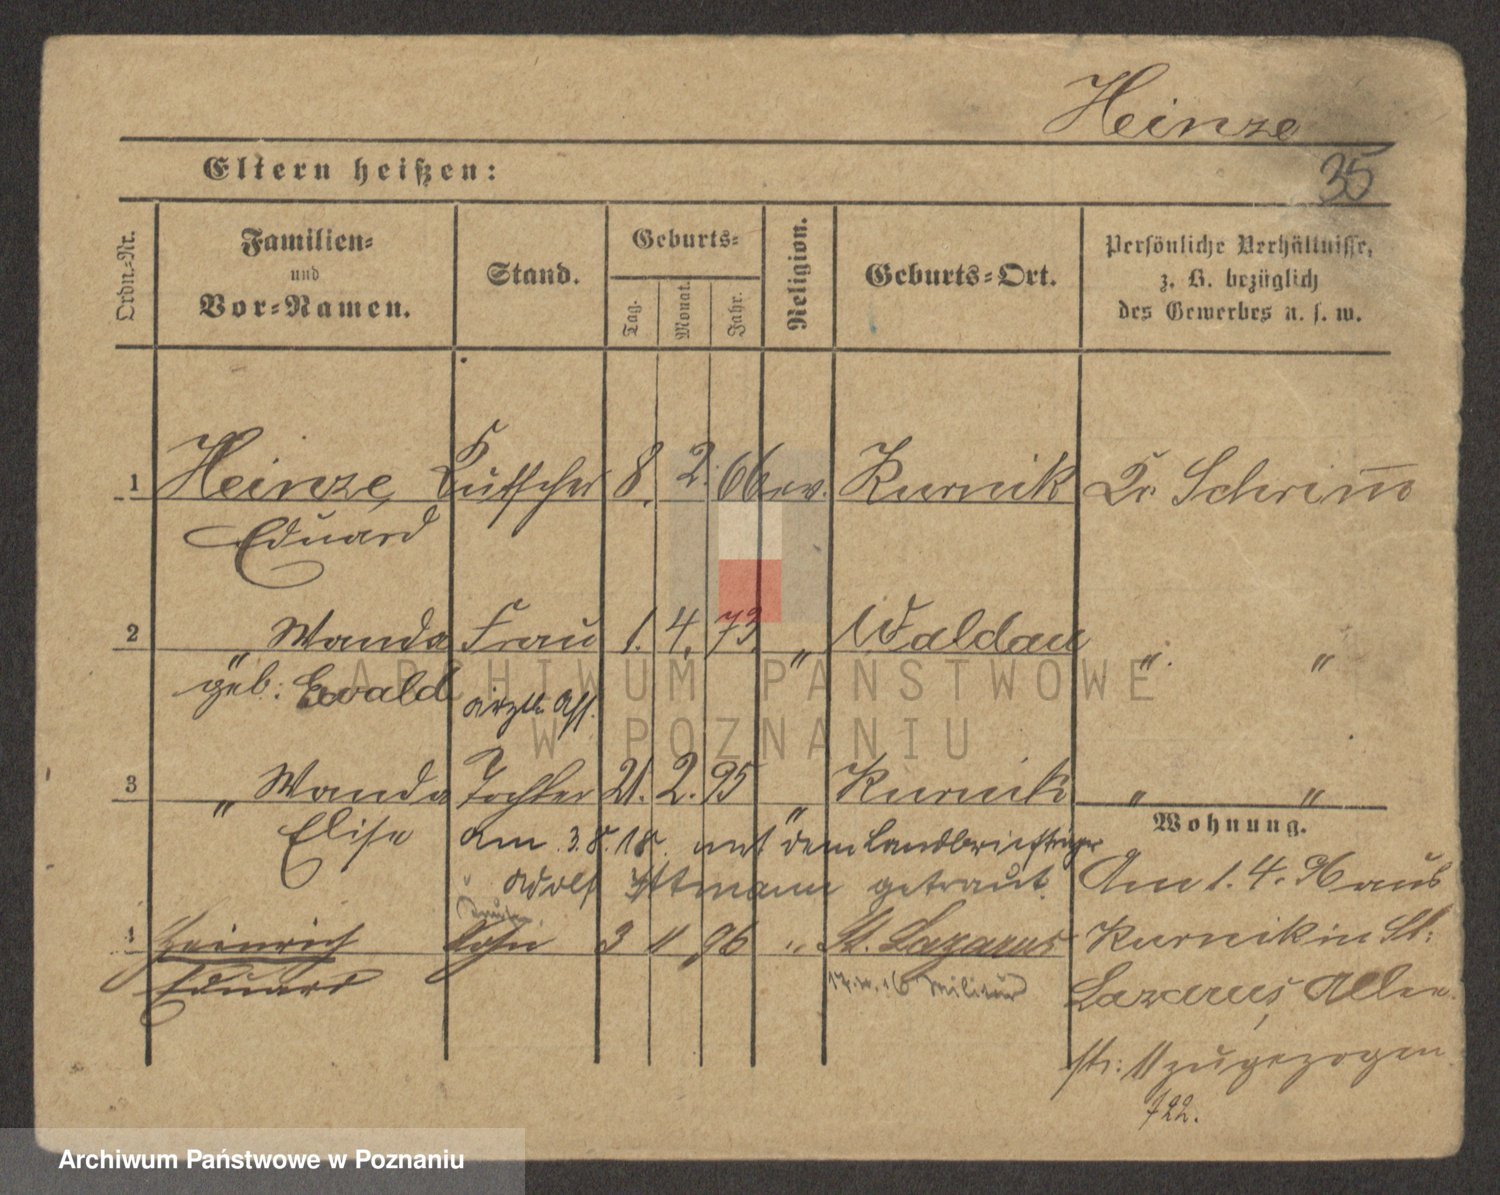 Heinze
Eltern heißen:
35
Ordn.-Nr.
Familien-
und
Vor-Namen.
Stand.
Geburts-
Tag.
Monat.
Jahr.
Religion.
Geburts-Ort.
Persönliche Verhältnisse,
z. B. bezüglich
des Gewerbes u. s. w.
1 Heinze, Kutscher 8. 2. 66 ev. Kurnik Kr. Schrimm
Eduard
2 " Wanda Frau 1. 4. 73 " Waldau " "
geb: Ewald ärztl. Ass.
3 " Wanda Tochter 21. 2. 95 " Kurnik " "
Elise am 3.8.18. mit dem Landbriefträger
Adolf getraut.
4 Heinrich Sohn 3 11 96 " St. Lazarus
Eduard
Militär
Wohnung.
Am 1. 4. 96 aus
Kurnik in St:
Lazarus, Allee
str: 11 zugezogen
722.
ARCHIWUM PAŃSTWOWE
W POZNANIU
Archiwum Państwowe w Poznaniu